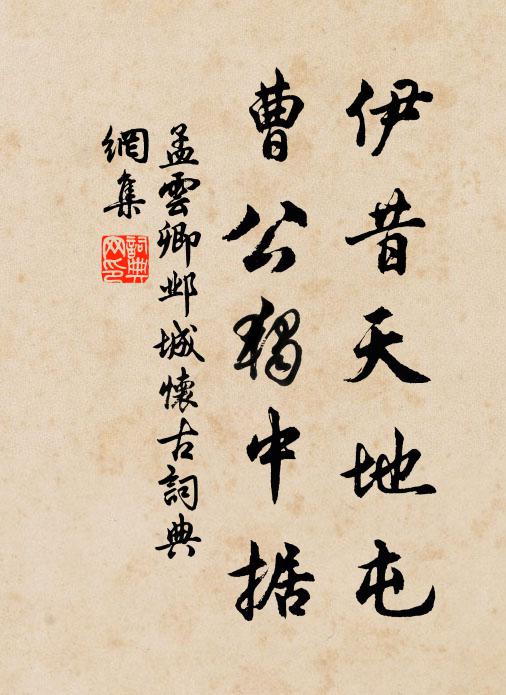 伊昔天地屯
曹公獨中据
孟雲卿邺城懷古詞典
網集
詞典
网印